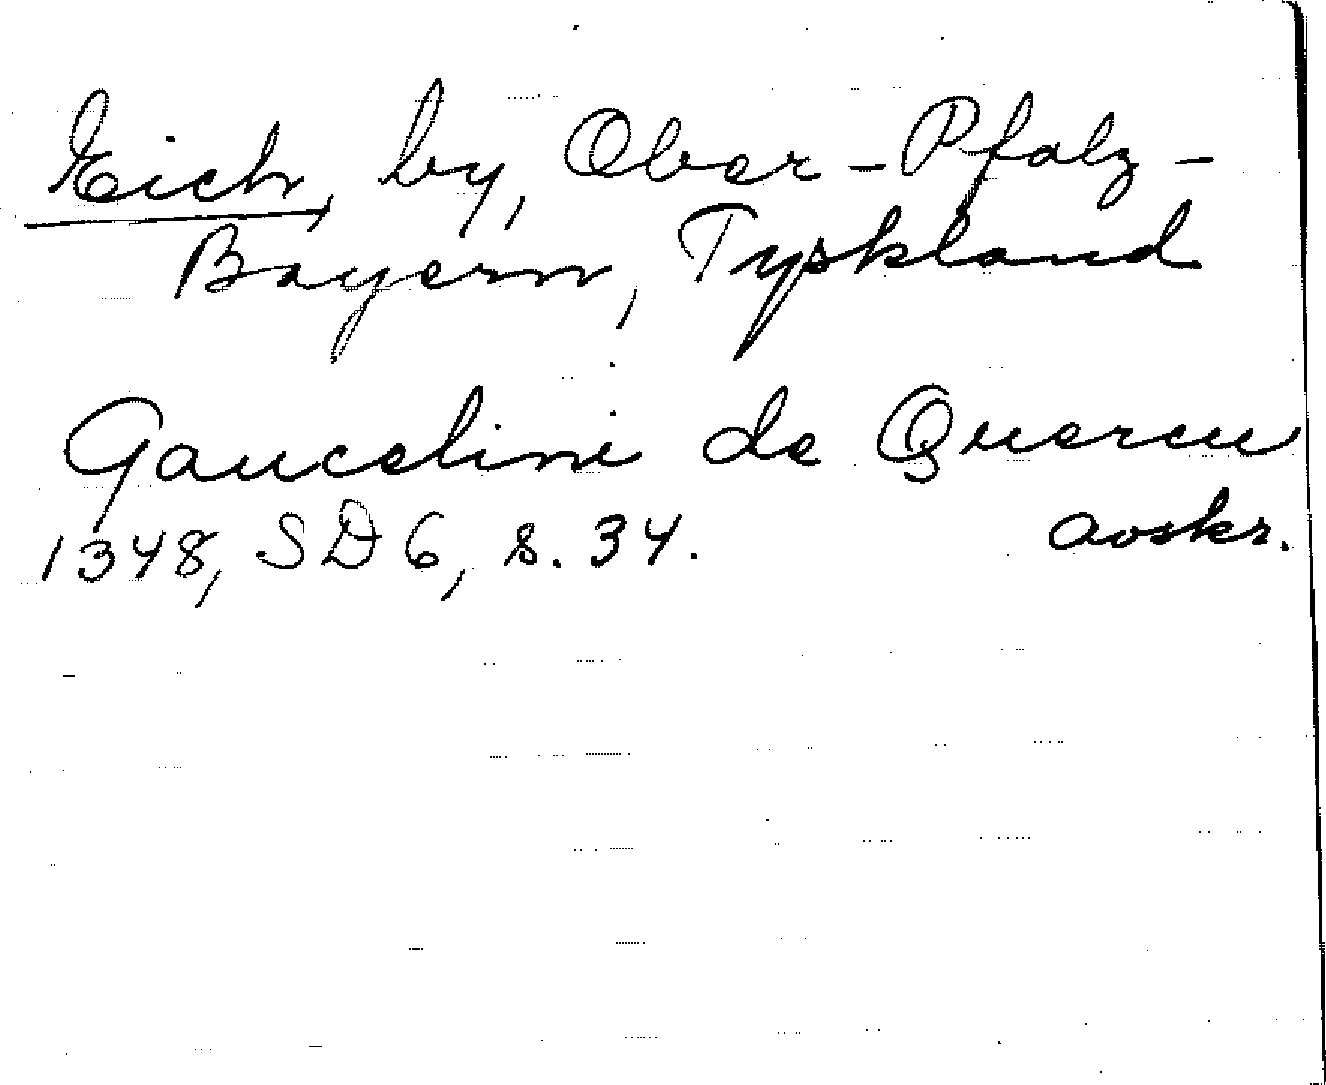 Eich, by, Ober-Pfalz-
Bayern, Tyskland
Gaucelini de Quercu
1348, SD 6, s. 34. avskr.